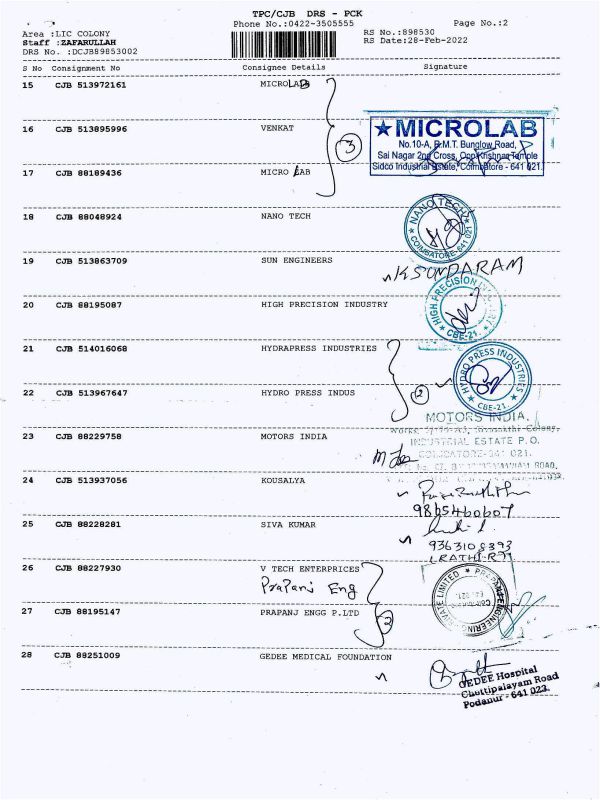 TPC/CJB DRS - PCK
Phone No.:0422-3505555
Page No.:2
Area :LIC COLONY
RS No.:898530
Staff :ZAFARULLAH
RS Date:28-Feb-2022
DRS No. :DCJB89853002
S No Consignment No Consignee Details Signature
15 CJB 513972161 MICROLAB
16 CJB 513895996 VENKAT
3
★MICROLAB
No.10-A, B.M.T. Bunglow Road,
Sai Nagar 2nd Cross, Opp.Krishnar Temple
Sidco Industrial Estate, Coimbatore - 641 021.
17 CJB 88189436 MICRO LAB
18 CJB 88048924 NANO TECH
★ NANO TECH ★
COIMBATORE-641 021
19 CJB 513863709 SUN ENGINEERS
K SUNDARAM
20 CJB 88195087 HIGH PRECISION INDUSTRY
HIGH PRECISION
★ CBE-21. ★
21 CJB 514016068 HYDRAPRESS INDUSTRIES
22 CJB 513967647 HYDRO PRESS INDUS
2
★ HYDRO PRESS INDUSTRIES ★
CBE-21.
23 CJB 88229758 MOTORS INDIA
MOTORS INDIA.
INDUSTRIAL ESTATE P.O.
COIMBATORE-641 021.
ROAD,
24 CJB 513937056 KOUSALYA
9865460607
25 CJB 88228281 SIVA KUMAR
9363108393
26 CJB 88227930 V TECH ENTERPRICES
Prapanj Eng
27 CJB 88195147 PRAPANJ ENGG P.LTD
2
★ PRAPANJ ENGINEERING PRIVATE LIMITED
28 CJB 88251009 GEDEE MEDICAL FOUNDATION
GEDEE Hospital
Chettipalayam Road
Podanur - 641 023.